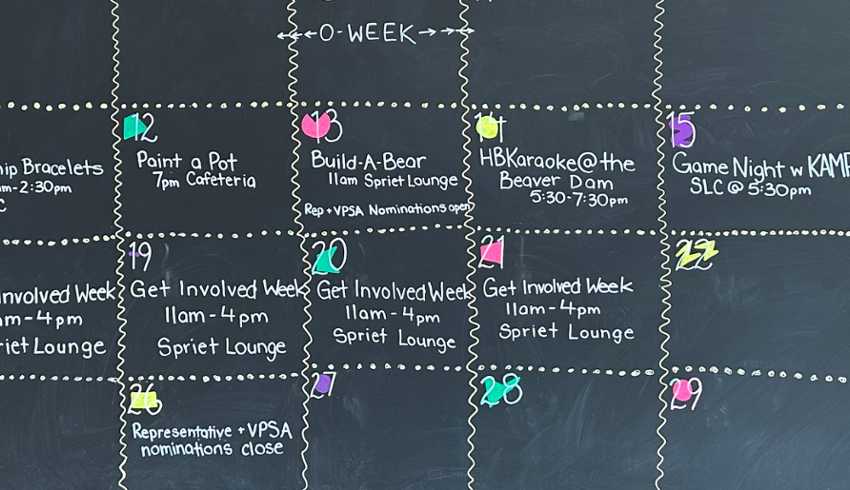 O-WEEK
ip Bracelets
m-2:30pm
C
12
Paint a Pot
7pm Cafeteria
13
Build-A-Bear
11am Spriet Lounge
Rep+VPSA Nominations open
14
HBKaraoke@the
Beaver Dam
5:30-7:30pm
15
Game Night w KAMP
SLC@5:30pm
nvolved Week
m-4pm
riet Lounge
19
Get Involved Week
11am-4pm
Spriet Lounge
20
Get Involved Week
11am-4pm
Spriet Lounge
21
Get Involved Week
11am-4pm
Spriet Lounge
22
26
Representative +VPSA
nominations close
27
28
29